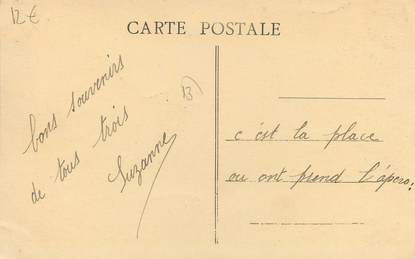 12€
CARTE POSTALE
bons souvenirs
de tous trois
Suzanne
13)
c'est la place
ou ont prend l'apero.